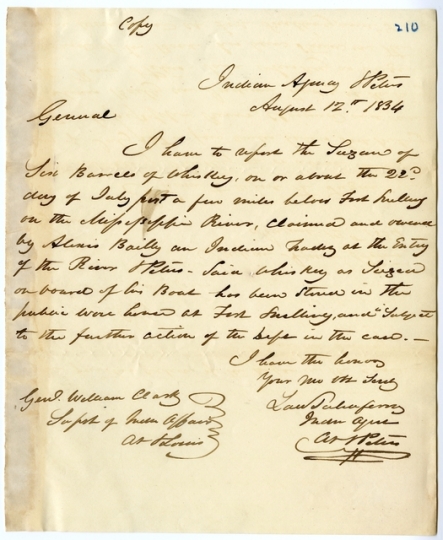 Copy
210
Indian Agency St Peters
August 12th 1834
General
I have to report the Seizure of
Six Barrels of Whiskey, on or about the 22d
day of July past a few miles below Fort Snelling
on the Mississippi River, claimed and owned
by Alexis Bailly an Indian Trader at the Entry
of the River St Peters - Said Whiskey as Seized
on board of his Boat has been Stored in the
public ware house at Fort Snelling, and Subject
to the further action of the Dept in the case. —
I have the honor
Your Mo Ob Servt
Genl. William Clark
Law Taliaferro
Supt of Indn Affairs
Indn Agent
At St Louis
At St Peters